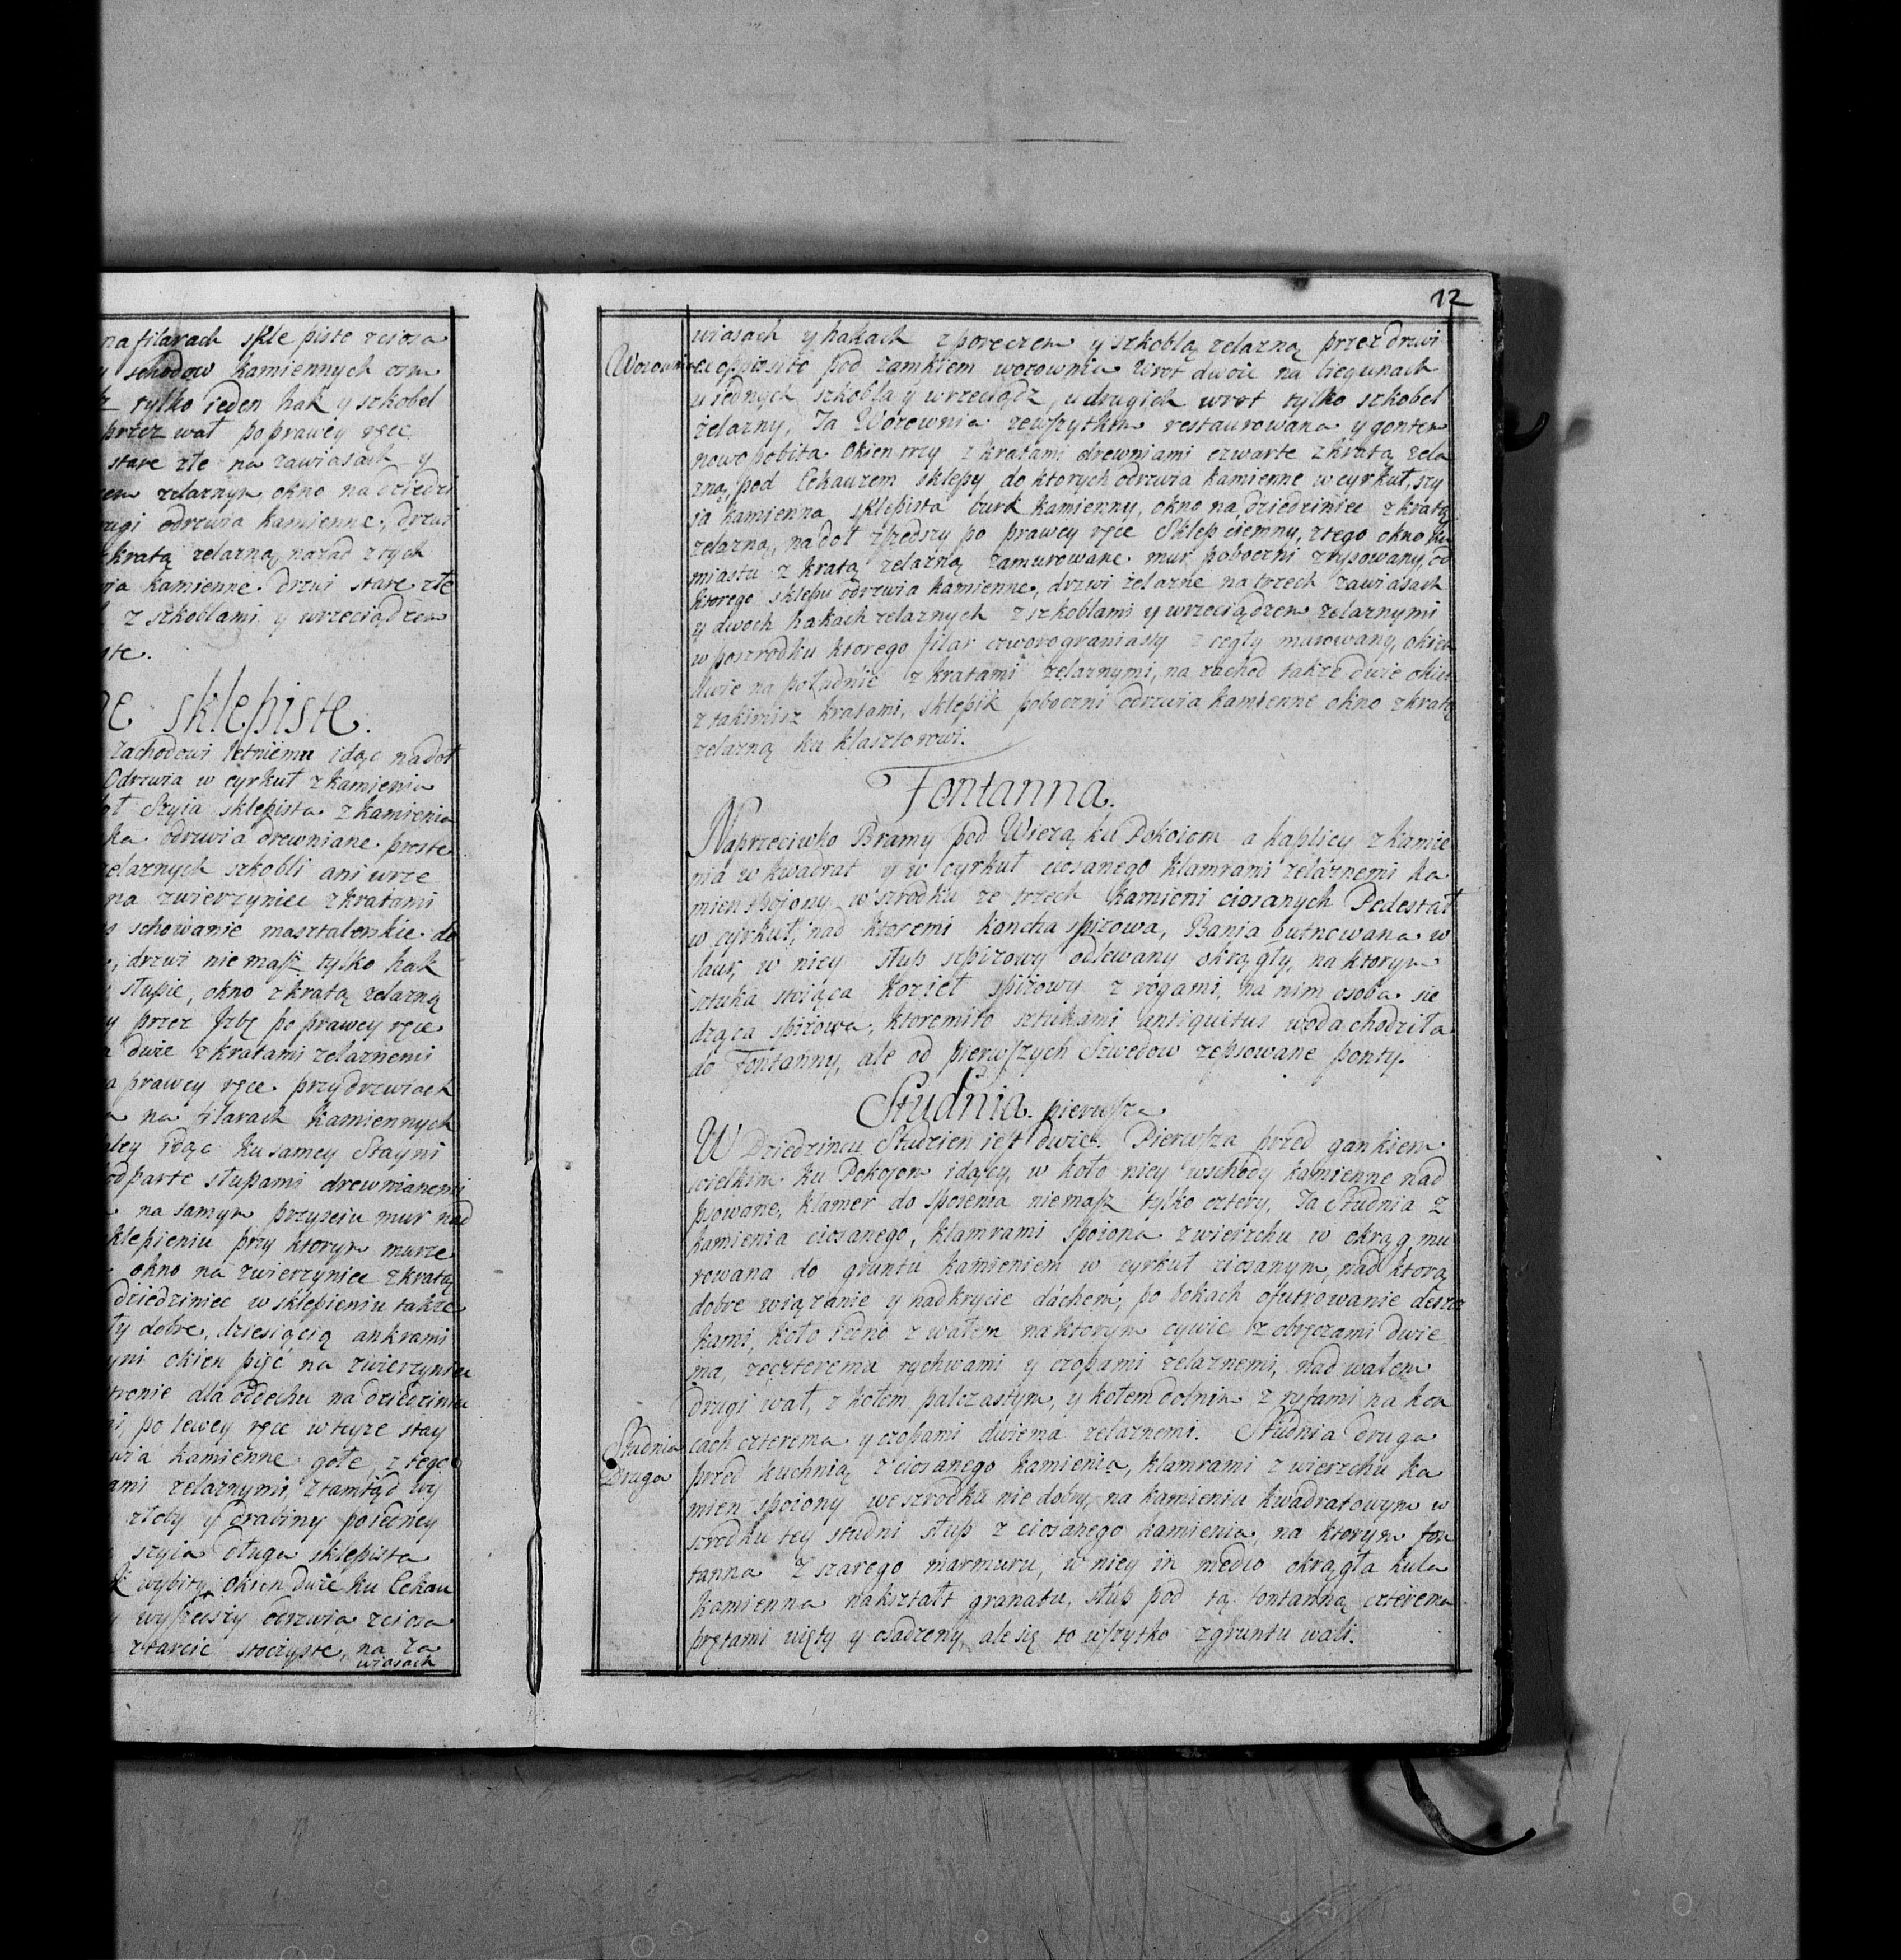 na filarach skle piste zciosa
y schodow kamiennych osm
tylko ieden hak y szkobel
przez wał po prawey ręce
stare złe na zawiasach y
zelaznym okno na dziedzi
odrzwia kamienne, drzwi
kratą zelazną, nazad z tych
kamienne. drzwi stare złe
z szkoblami y wrzeciądzem
sklepiste.
Zachodowi letniemu idąc nadoł
Odrzwia w cyrkuł z kamienia
Szyia sklepista z kamienia
odrzwia drewniane proste
zelaznych szkobli ani wrze
na zwierzyniec z kratami
schowanie masztalerskie do
drzwi niemasz tylko hak
słupie, okno z kratą zelazną
przez Jzbę po prawey ręce
dwie z kratami zelaznemi
prawey ręce przy drzwiach
na filarach kamiennych
idąc ku samey Stayni
podparte słupami drewnianemi
na samym przyściu mur nad
sklepieniu przy ktorym murze
okno na zwierzyniec z kratą
dziedziniec w sklepieniu także
dobre, dziesiącią ankrami
okien pięć na zwierzyniec
stronie dla oddechu na dziedzincu
po lewey ręce w teyze stay
kamienne gołe, z tego
zelaznymi, ztamtąd wy
złoby y drabiny po iedney
szyia długa sklepista
wybity okien dwie ku Cekau
wyszedszy odrzwia zciosa
ztarcic stoczyste, na za
wiasach
12
wiasach y hakach z poreczem y szkoblą zelazną przez drzwi
Wozownia
ex opposito pod zamkiem wozownia Wrot dwoie na biegunach
u iednych szkobla y wrzeciądz, u drugich wrot tylko szkobel
żelazny, Ta Wozownia zewszytkim restaurowana y gontem
nowo pobita. okien trzy z kratami drewniami czwarte z kratą zela
zną, pod Cekauzem sklepy do ktorych odrzwia kamienne w cyrkuł, szy
ja kamienna sklepista burk kamienny, okno na dziedziniec z kratą
zelazną, nadoł zszedszy po prawey ręce Sklep ciemny, z tego okno ku
miastu z kratą zelazną zamurowane. mur poboczni zrysowany, od
ktorego sklepu odrzwia kamienne, drzwi żelazne na trzech zawiasach
y dwoch hakach zelaznych z szkoblami y wrzeciądzem zelaznymi
w poszrodku ktorego filar czworograniasty z cegły murowany, okien
dwie na południe z kratami zelaznymi, na zachod także dwie okien
z takimisz kratami, sklepik poboczni odrzwia kamienne okno z kratą
zelazną ku klasztorowi.
Fontanna.
Naprzeciwko Bramy pod Wieżą ku Pokoiom a kaplicy z kamie
nia w kwadrat y w cyrkuł ciosanego klamrami żelaznemi ka
mien spoiony wszrodku ze trzech kamieni ciosanych Pedestał
w cyrkuł, nad ktoremi koncha spizowa, Bania butnowana w
laur, w niey słup szpizowy odlewany okrągły, na ktorym
sztuka stoiąca kozieł spiżowy z rogami, na nim osoba sie
dząca spiżowa, ktoremito sztukami antiquitus woda chodziła
do Fontanny, ale od pierwszych Szwedow zepsowane ponty.
Studnia pierwsza
W Dziedzincu Studzien iest dwie. Pierwsza przed gankiem
wielkim ku Pokojom idący, w koło niey wschody kamienne nad
psowane, klamer do spoienia niemasz tylko cztery. Ta Studnia z
kamienia ciosanego, klamrami spoiona zwierzchu w okrąg, mu
rowana do gruntu kamieniem w cyrkuł ciosanym, nad ktorą
dobre wiązanie y nadkrycie dachem, po bokach ofutrowanie deszcz
kami, koło iedno z wałem na ktorym cywie z obręczami dwie
ma, zeczterema rychwami y czopami zelaznemi, nad wałem
drugi wał, z kołem palczastym, y kołem dolnim z ryfami na kon
cach czterema y czopami dwiema zelaznemi. Studnia druga
Studnia
Druga
przed kuchnią z ciosanego kamienia, klamrami z wierzchu ka
mien spoiony weszrodku nie dobry, na kamieniu kwadratowym w
szrodku tey studni słup z ciosanego kamienia, na ktorym fon
tanna z szarego marmuru, w niey in medio okrągła kula
kamienna nakształt granatu, słup pod tą fontanną czterema
prętami uięty y osadzony, ale się to wszytko z gruntu wali.